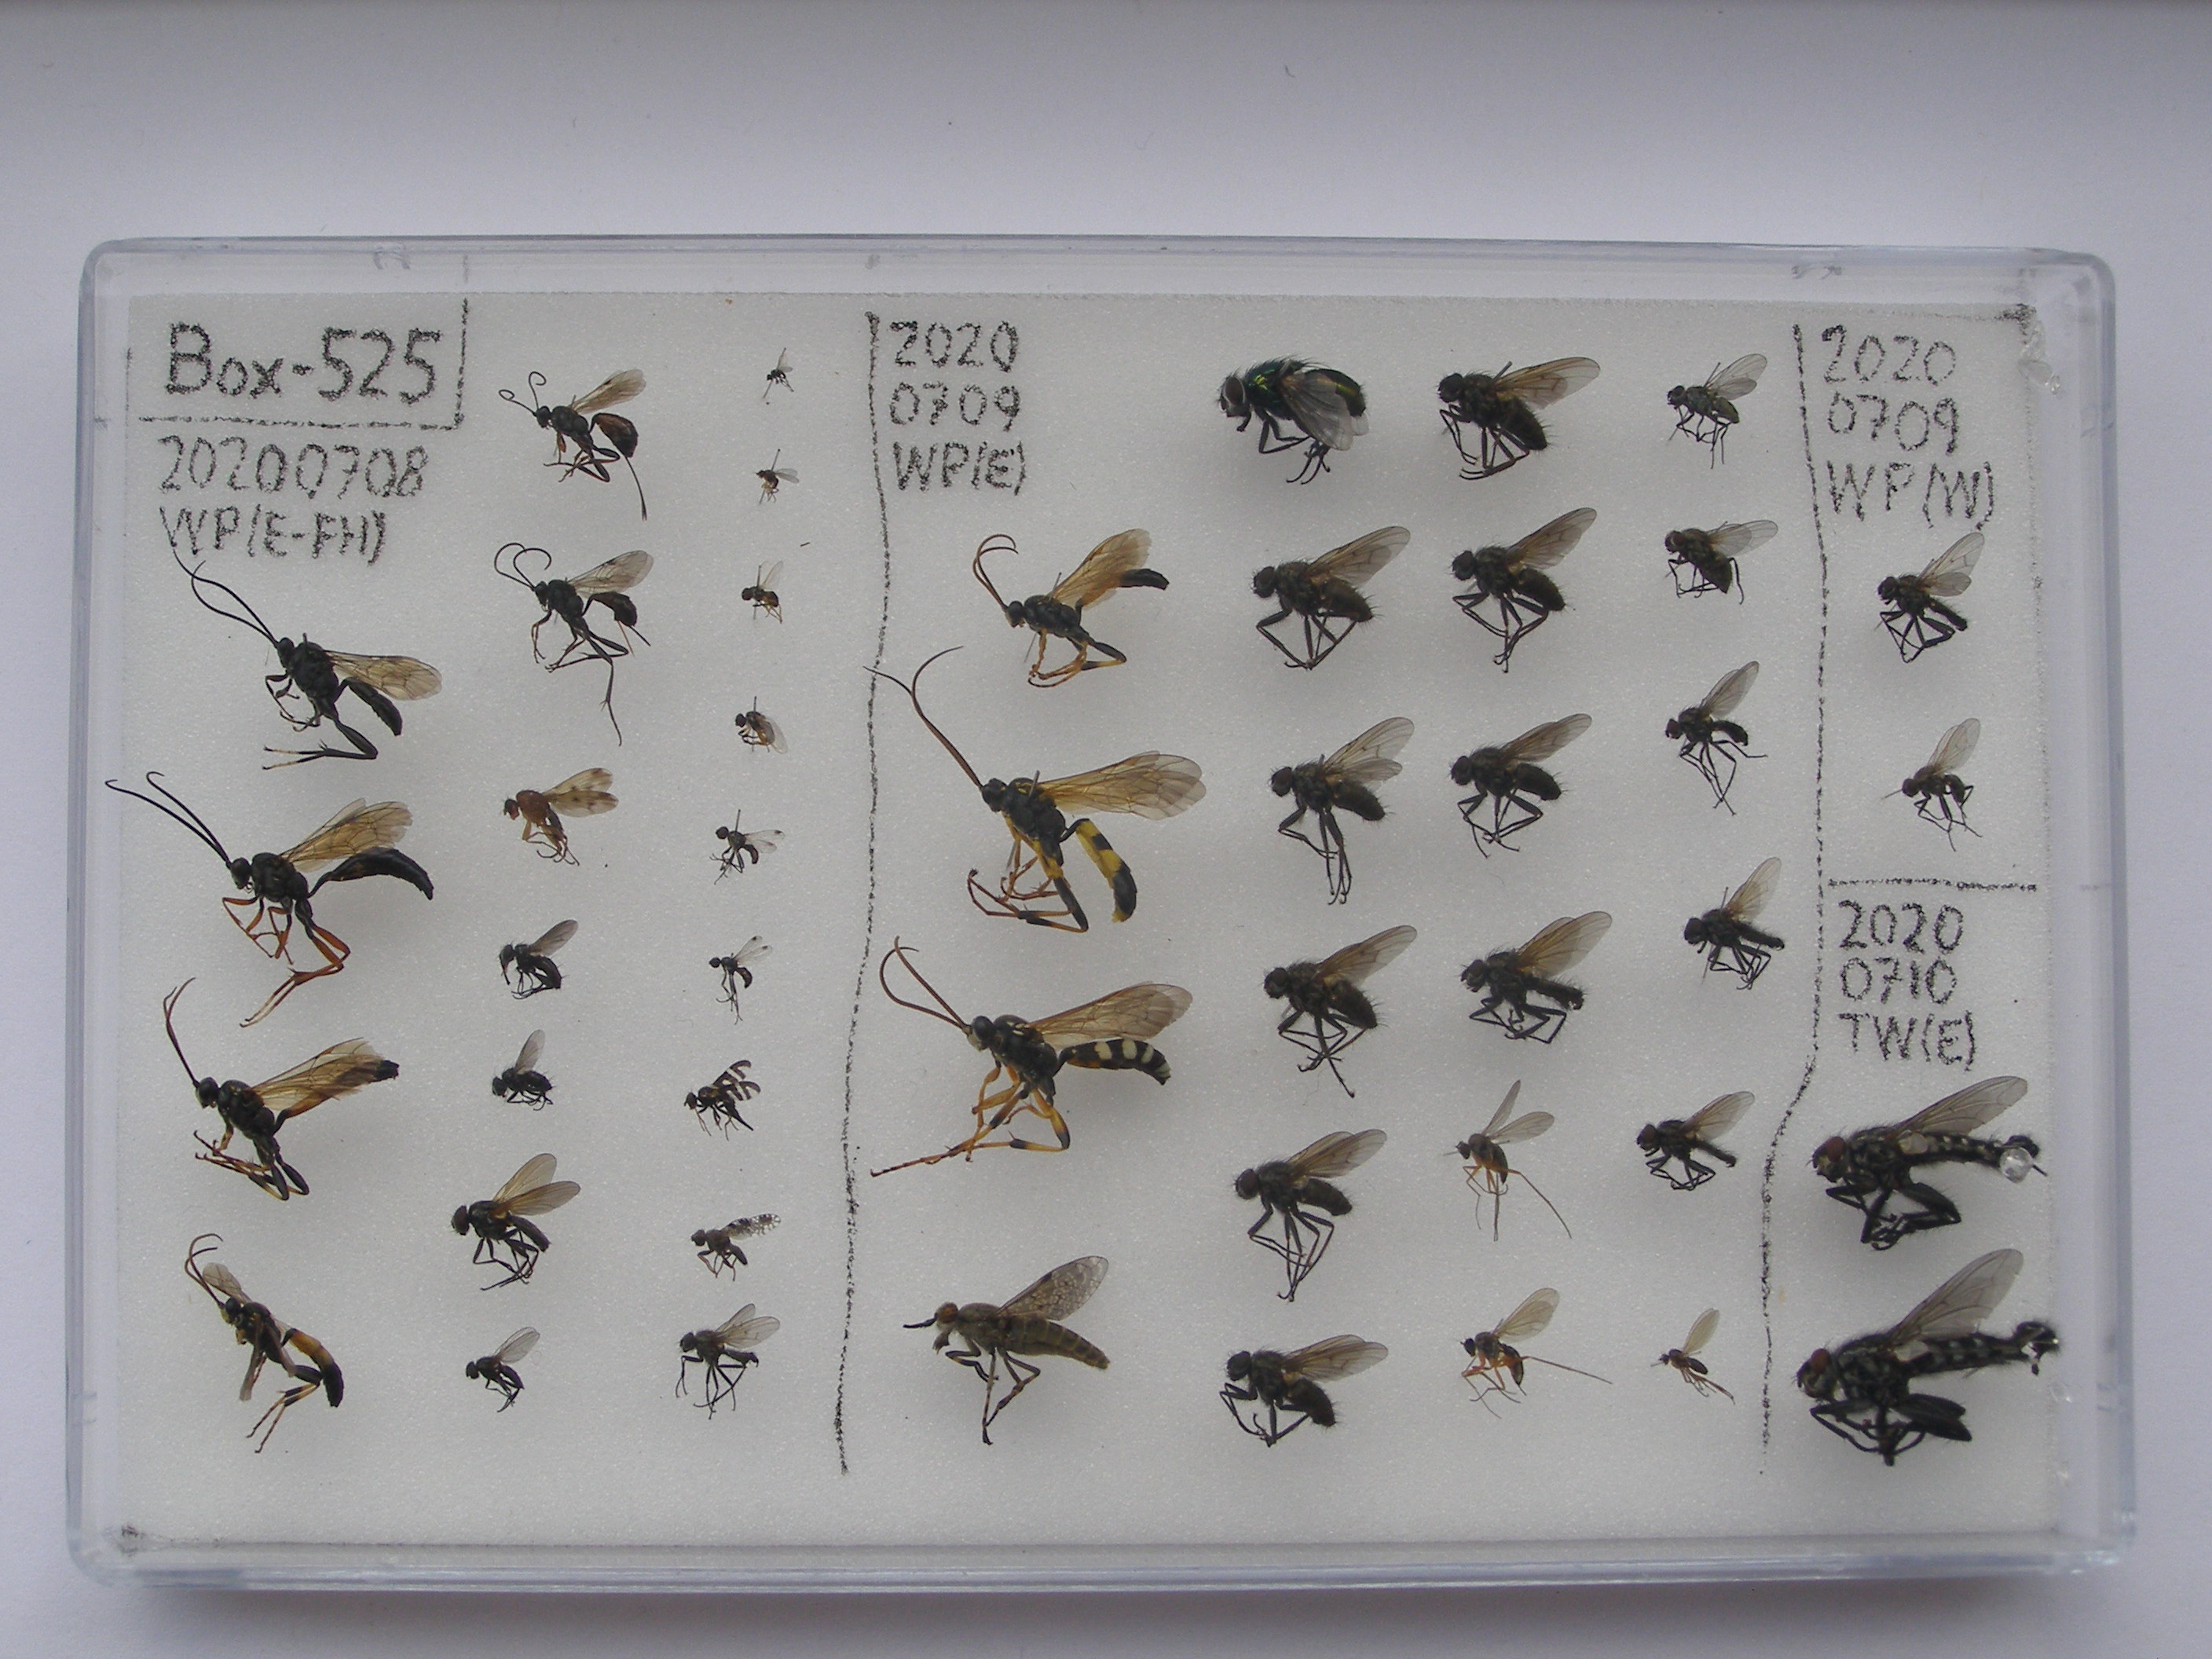 Box-525
20200708
WP(E-FH)
2020
0709
WP(E)
2020
0709
WP(W)
2020
0710
TW(E)